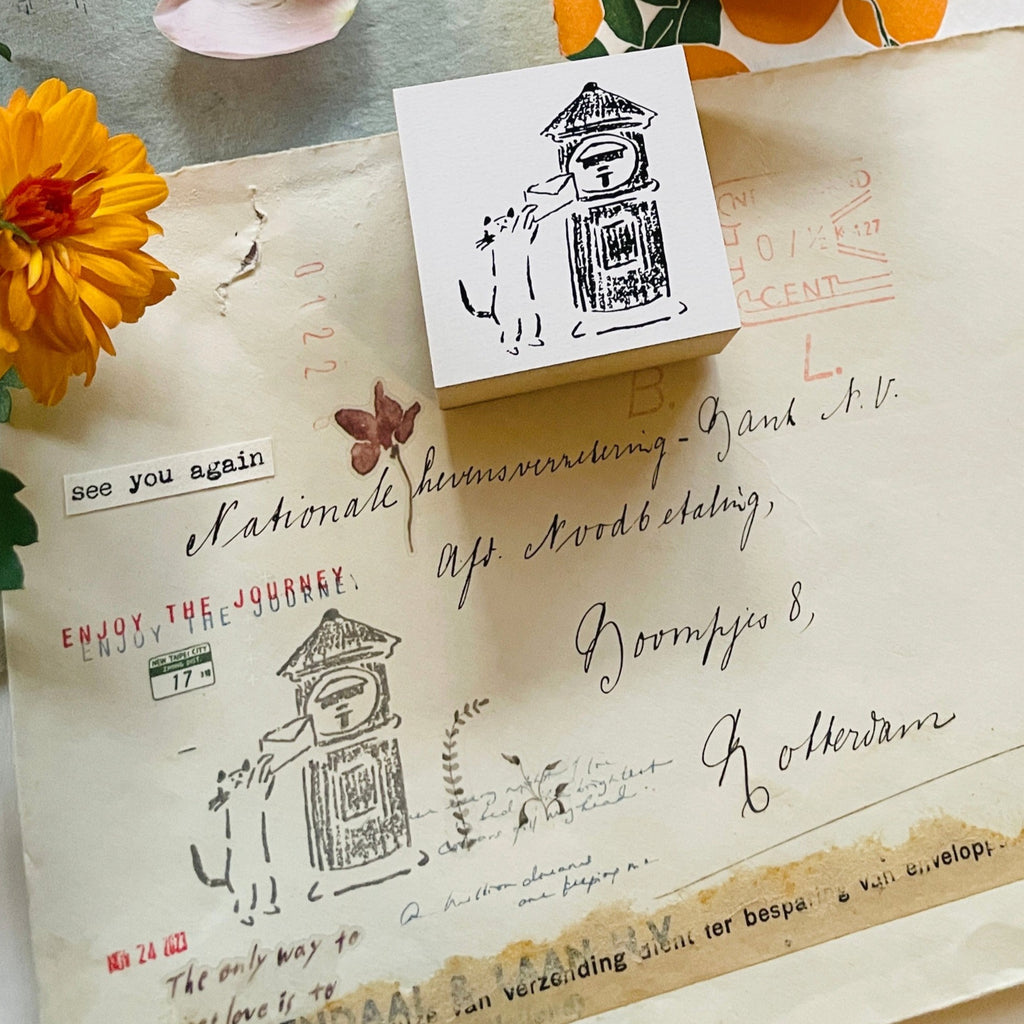 0122
CENT
0 / ½
K 427
B.
L.
see you again
Nationale Levensverzekering-Bank N.V.
Afd. Noodbetaling,
Boompjes 8,
Rotterdam
ENJOY THE JOURNEY
ENJOY THE JOURNEY
NEW TAIPEI CITY
17
A million dreams
are keeping me
NOV 24 2023
The only way to
love is to
DAAL & LAAN N.V.
van verzending dient ter besparing van envelopp